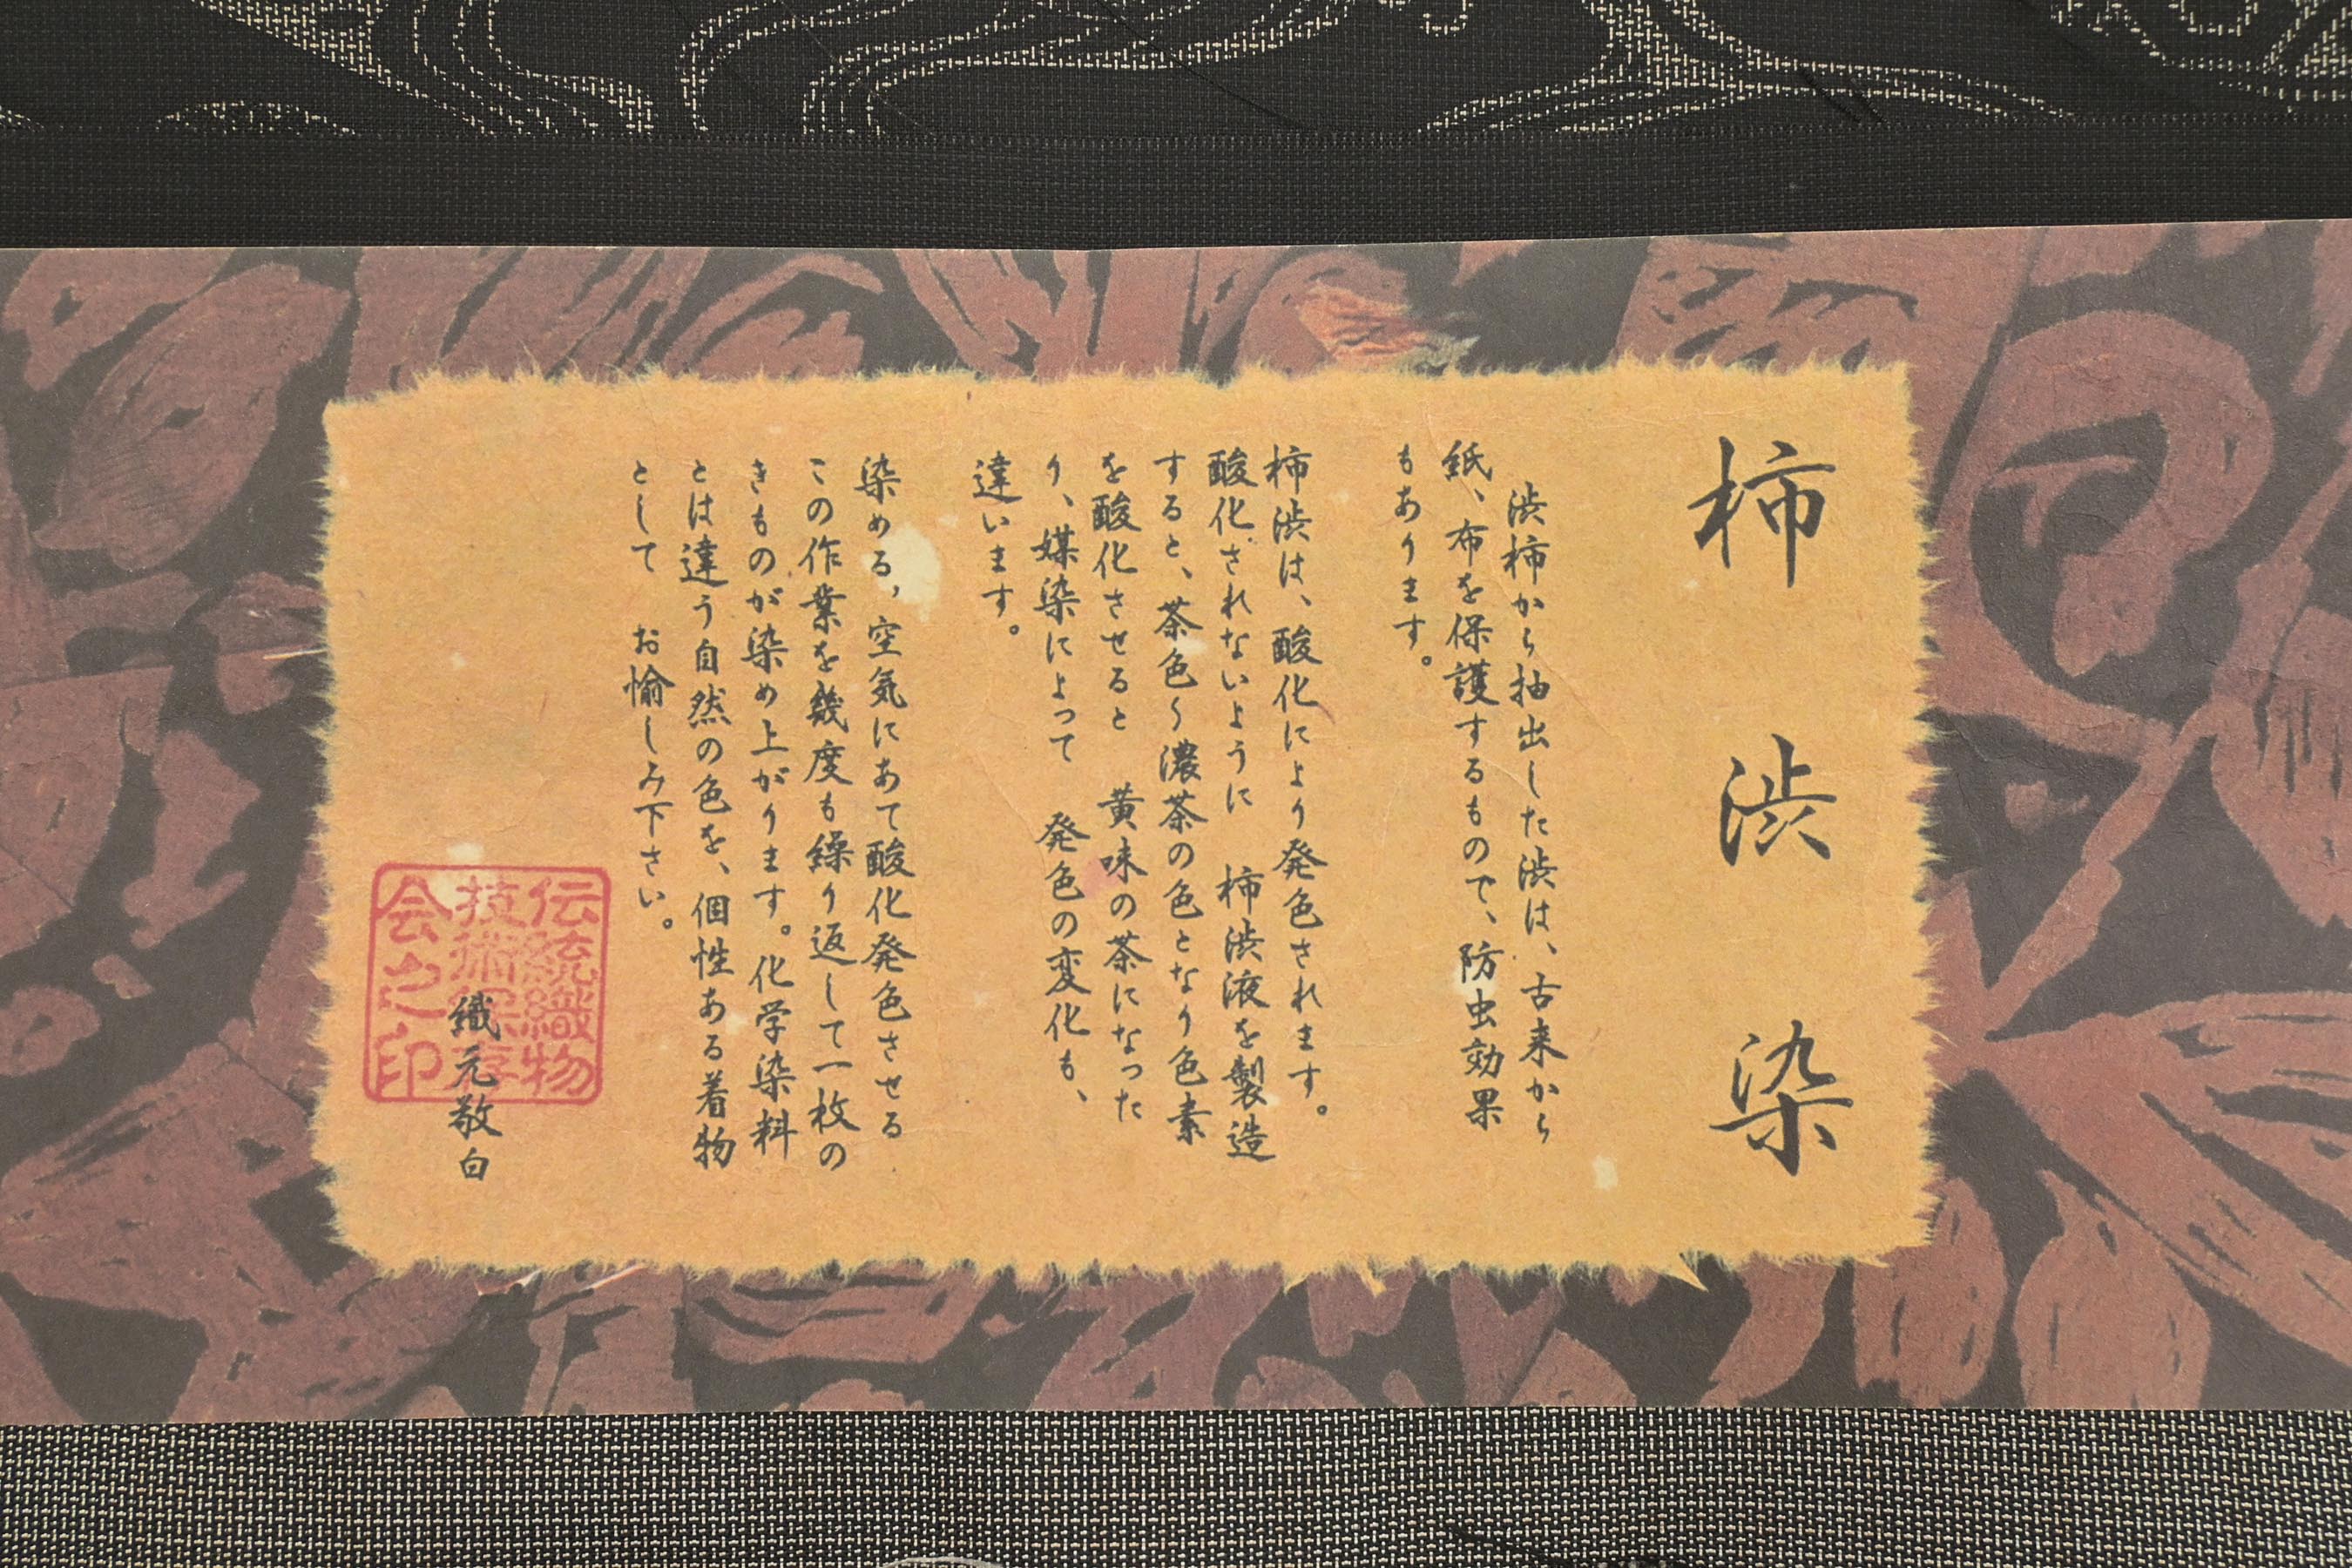 柿渋染
渋柿から抽出した渋は、古来から
紙、布を保護するもので、防虫効果
もあります。
柿渋は、酸化により発色されます。
酸化されないように 柿渋液を製造
すると、茶色〜濃茶の色となり色素
を酸化させると 黄味の茶になった
り、媒染によって 発色の変化も、
違います。
染める、空気にあて酸化発色させる
この作業を幾度も繰り返して一枚の
きものが染め上がります。化学染料
とは違う自然の色を、個性ある着物
として お愉しみ下さい。
織元敬白
伝統織物
技術保存
会之印